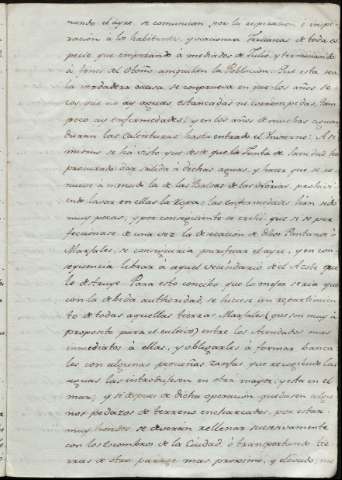 nando el ayre, se comunican, por la respiracion è inspi-
racion à los habitantes, y ocasionan Tercianas de toda es-
pecie que empezando à mediados de Julio, y terminando
à fines del Otoño aniquilan la Poblacion. Que esta sea
la verdadera causa se comprueva en que los años se-
cos que no ay aguas estancadas ni corrompidas, tam-
poco ay enfermedades; y en los años de muchas aguas
duran las Calenturas hasta entrado el Invierno: Asi
mismo se ha visto que desde que la Junta de Sanidad ha
procurado dar salida à dichas aguas, y hacer que se re-
nueve à menudo la de las Balsas de los prohi-
viendo lavar en ellas la Ropa; las enfermedades han sido
muy pocas, y por consiguiente es creible que si se per-
feccionase de una vez la desecacion de dichos Pantanos ò
Marjales, se conseguiria purificar el ayre, y en con-
seqüencia librar à aquel vecindario del Azote que
le destruye. Para esto concibo que lo mejor seria que
con la debida authoridad, se hiciese un repartimiento
de todas aquellas tierras Marjales (que son muy à
proposito para el cultivo) entre los Arendados mas
inmediatos à ellas, y obligarles à formar banca-
les con algunas pequeñas zanjas que recogiendo las
aguas las introdujesen en otra mayor, y esta en el
mar; y si despues de dicha operacion quedasen algu-
nos pedazos de terreno encharcados, por estar
muy hondos se deverán rellenar sucesivamente
con los escombros de la Ciudad, ò transportando tie-
rras de otro parage mas proximo, y elevado; no